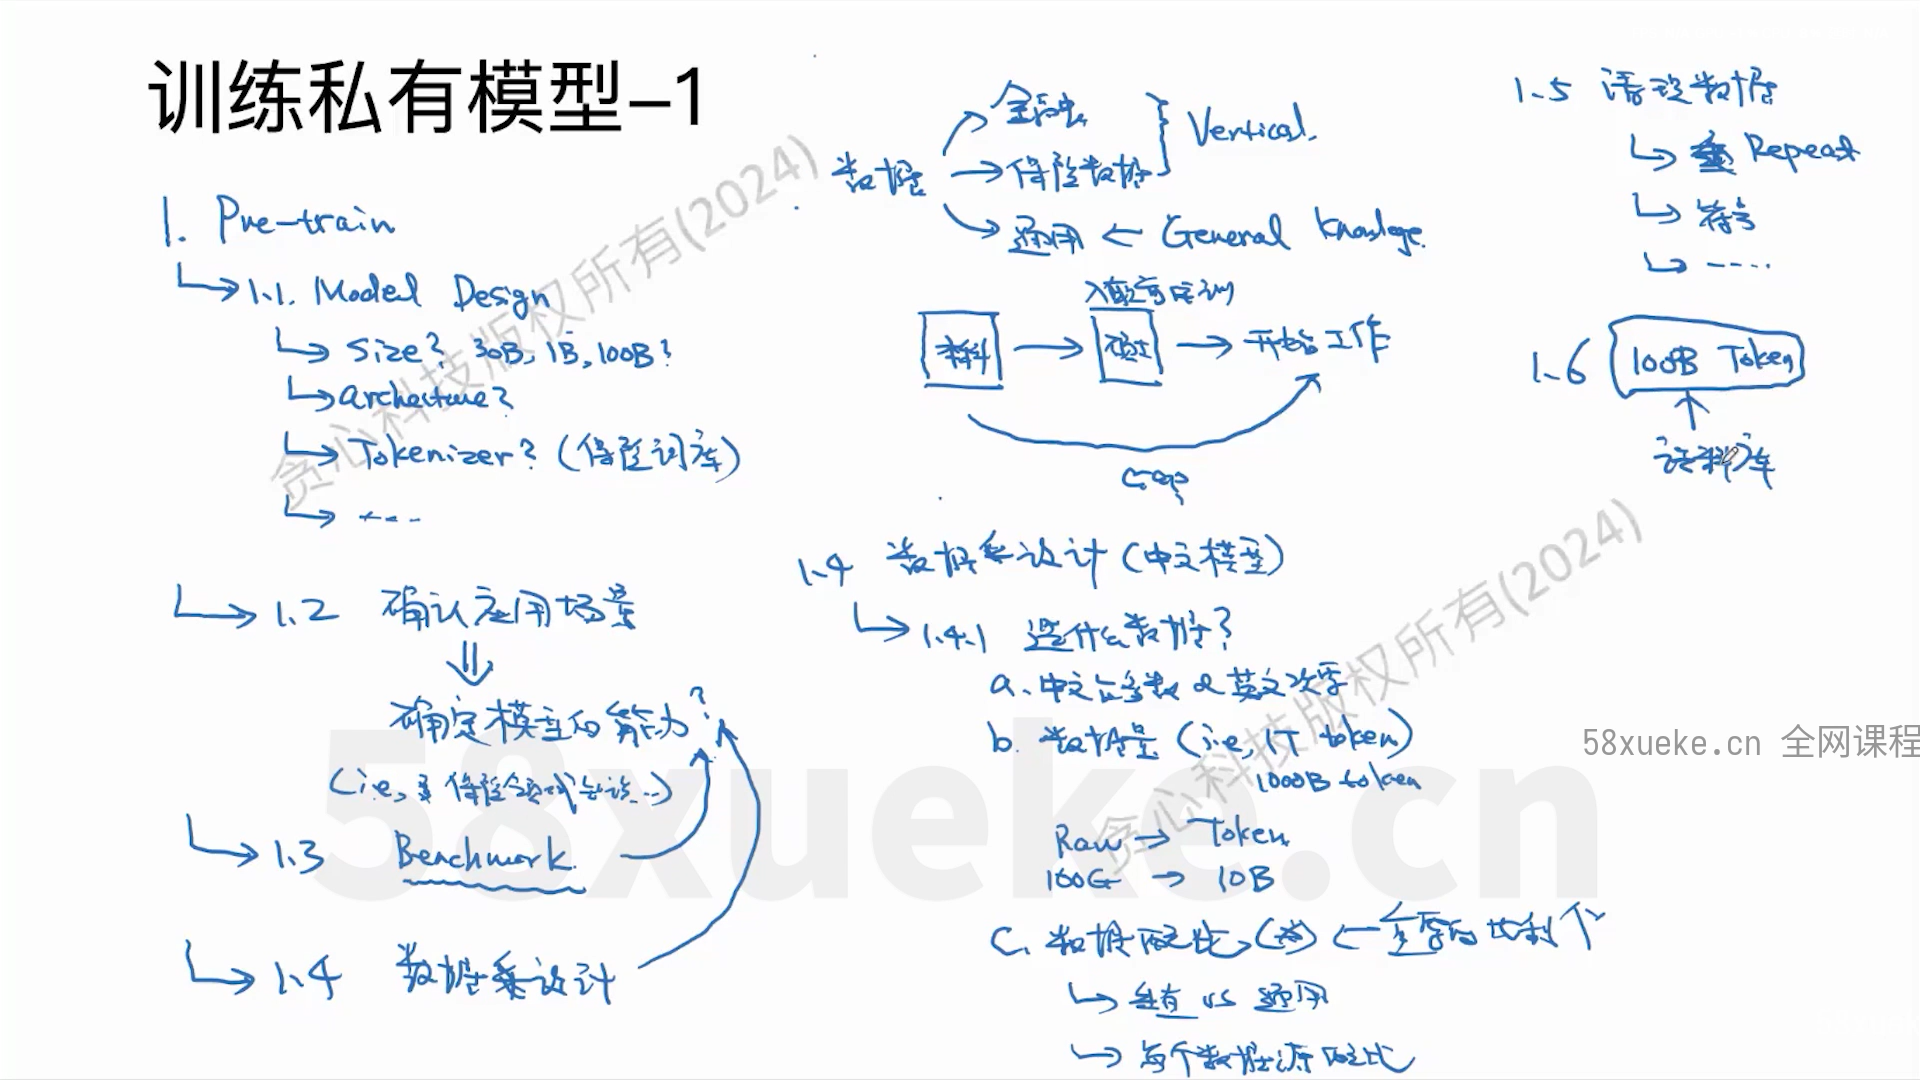 训练私有模型-1
1. Pre-train
1.1. Model Design
Size? 30B, 1B, 100B?
Archecture?
Tokenizer? (保险词库)
----
1.2 确认应用场景
确定模型的能力?
(i.e, 保险领域知识...)
1.3 Benchmark
1.4 数据集设计
数据
金融
保险数据
Vertical.
通用 ← General Knowlege.
入职前培训
本科 → 硕士 → 开始工作
Gap
1.4 数据集设计 (中文模型)
1.4.1 选什么数据?
a. 中文占多数 & 英文次要
b. 数据量 (i.e, 1T token)
1000B token
Raw → Token
100G → 10B
c. 数据配比 (*) ←
私有 vs 通用
每个数据源配比
1.5 清理数据
Repeat
符号
----
1.6 100B Token
语料库
贪心科技版权所有(2024)
贪心科技版权所有(2024)
58xueke.cn 全网课程
58xueke.cn